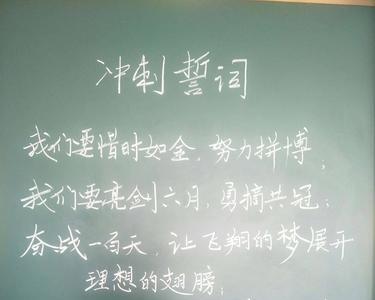 冲刺誓词
我们要惜时如金,努力拼搏;
我们要亮剑六月,勇摘共冠;
奋战一百天,让飞翔的梦展开
理想的翅膀;